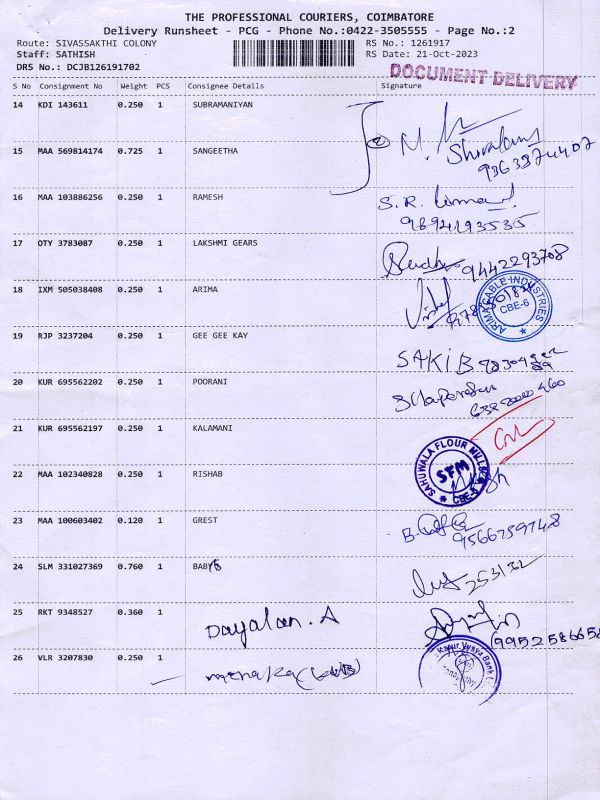 THE PROFESSIONAL COURIERS, COIMBATORE
Delivery Runsheet - PCG - Phone No.:0422-3505555 - Page No.:2
Route: SIVASSAKTHI COLONY RS No.: 1261917
Staff: SATHISH RS Date: 21-Oct-2023
DRS No.: DCJB126191702
DOCUMENT DELIVERY
S No Consignment No Weight PCS Consignee Details Signature
14 KDI 143611 0.250 1 SUBRAMANIYAN
15 MAA 569814174 0.725 1 SANGEETHA
16 MAA 103886256 0.250 1 RAMESH S.R.
9894193535
17 OTY 3783087 0.250 1 LAKSHMI GEARS
9442293708
18 IXM 505038408 0.250 1 ARIMA
ARIMA CABLE INDUSTRIES
CBE-6
19 RJP 3237204 0.250 1 GEE GEE KAY SAKIB
20 KUR 695562202 0.250 1 POORANI
21 KUR 695562197 0.250 1 KALAMANI
22 MAA 102340828 0.250 1 RISHAB
SAHUWALA FLOUR MILLS
SFM
CBE-
23 MAA 100603402 0.120 1 GREST B.
9566759748
24 SLM 331027369 0.760 1 BABY 253132
25 RKT 9348527 0.360 1 Dayalan. A
995258665
26 VLR 3207830 0.250 1 menaka
Karur Vysya Bank